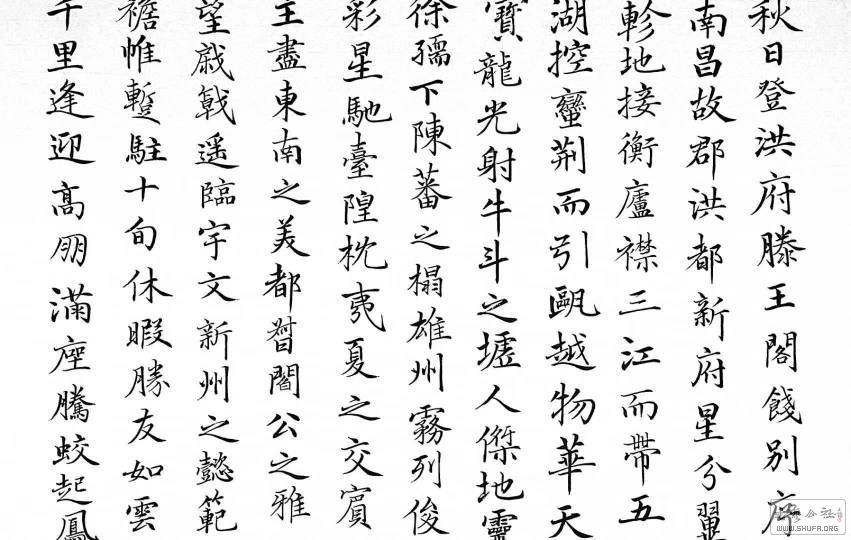 秋日登洪府滕王閣餞別序
南昌故郡洪都新府星分翼
軫地接衡廬襟三江而帶五
湖控蠻荊而引甌越物華天
寶龍光射牛斗之墟人傑地靈
徐孺下陳蕃之榻雄州霧列俊
彩星馳臺隍枕夷夏之交賓
主盡東南之美都督閻公之雅
望棨戟遥臨宇文新州之懿範
襜帷暫駐十旬休暇勝友如雲
千里逢迎高朋滿座騰蛟起鳳
WWW.SHUFA.ORG